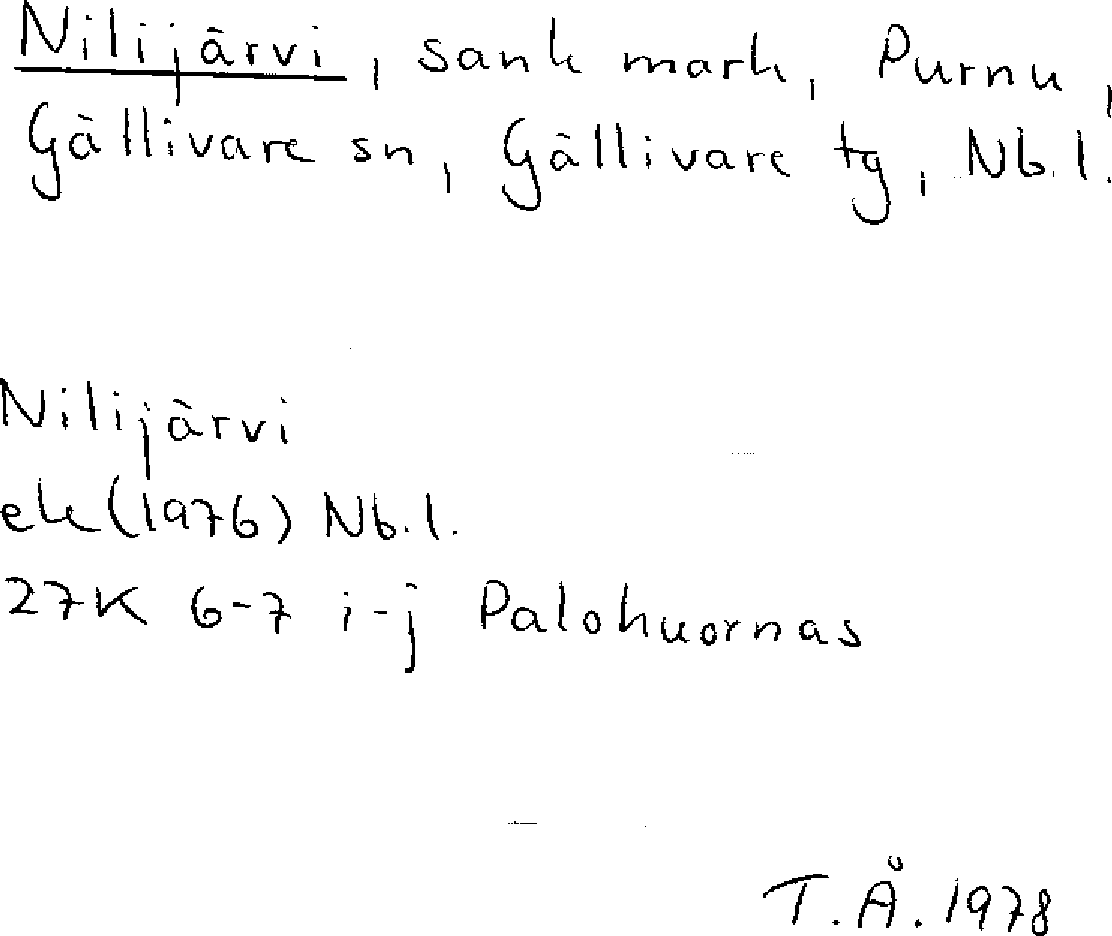 Nilijärvi, sank mark, Purnu,
Gällivare sn, Gällivare tg, Nb.l.
Nilijärvi
ek (1976) Nb.l.
27K 6-7 i-j Palohuornas
T.Å. 1978